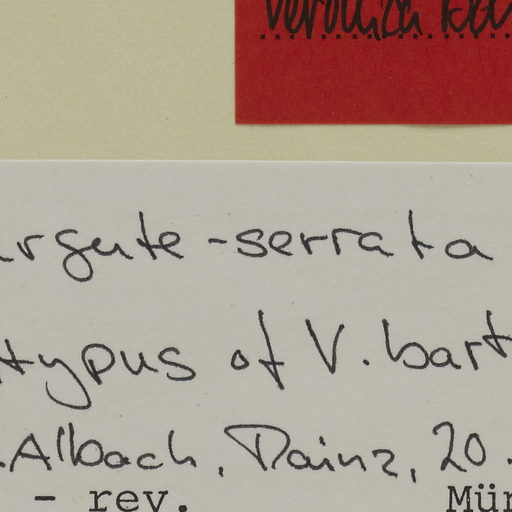 Veronica
argute-serrata
typus of V. bart
. Albach, Mainz, 20.
- rev. Mün